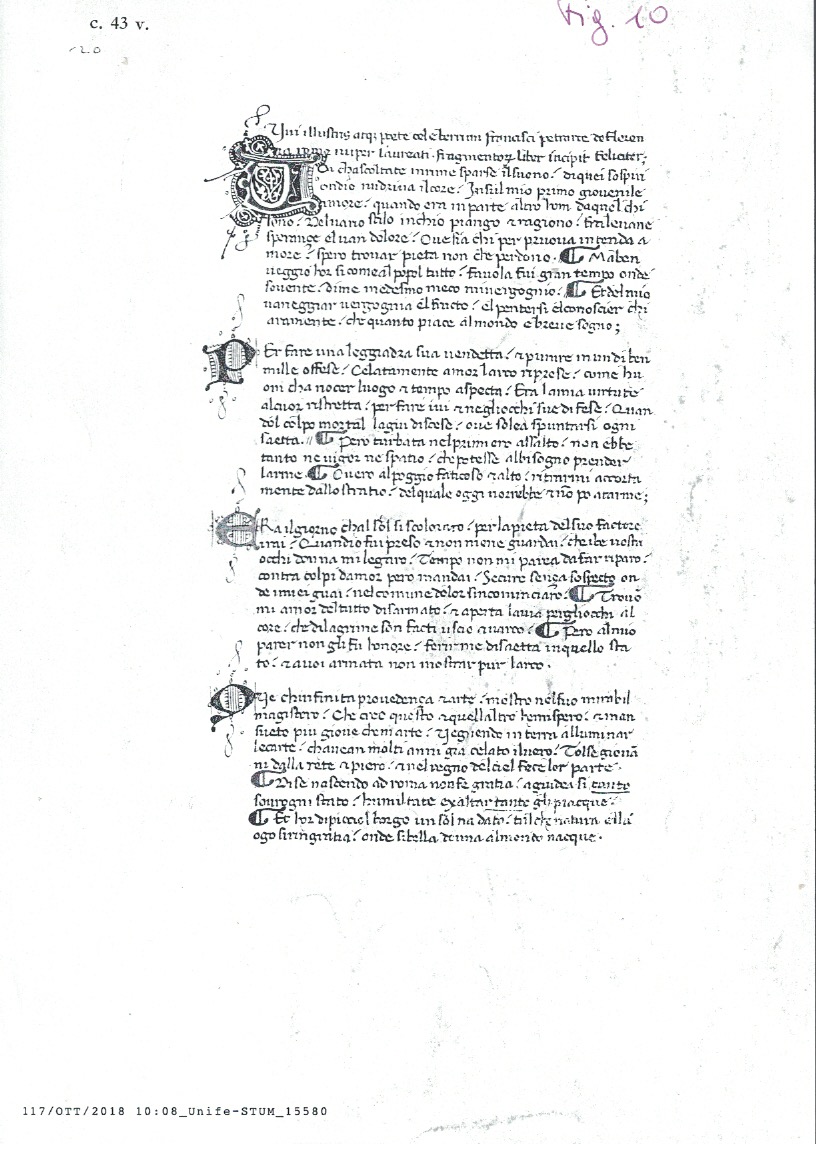 c. 43 v.
Fig. 10
Viri illustris atq; poete celeberrimi francisci petrarce de floren
nuper laureati. fragmentoꝝ liber incipit feliciter;
Oi chascoltate inrime sparse ilsuono / diquei sospiri
ondio nudriua ilcore / Insul mio primo giouenile
errore / quando era inparte altro hom daquel chi
sono / Deluario stilo inchio piango & ragiono / fraleuane
speranze eluan dolore / Oue sia chi per pruoua intenda a
more / spero trouar pieta non che perdono. ¶ Ma ben
ueggio hor si come al popol tutto / fauola fui gran tempo onde
souente / dime medesmo meco miuergogno / ¶ Et del mio
uaneggiar uergogna el fructo / el pentersi elconoscier chi
aramente / che quanto piace almondo e breue sogno;
PEr fare una leggiadra sua uendetta / & punire in un di ben
mille offese / Celatamente amor larco riprese / come hu
om cha nocer luogo & tempo aspecta / Era lamia uirtute
alcuor ristretta / per fare iui & negliocchi sue difese / Quan
dol colpo mortal lagiu discese / oue solea spuntarsi ogni
saetta. // ¶ Pero turbata nelprimiero assalto / non ebbe
tanto ne uigor ne spatio / che potesse albisogno prender
larme. ¶ Ouero alpoggio faticoso & alto / ritrarmi accorta
mente dallo stratio / delquale oggi uorrebbe & nō po atarme;
ERa ilgiorno chal sol si scoloraro / per lapieta delsuo factore
irai / Quandio fui preso & non mene guardai / che ibe uostri
occhi donna mi legaro / Tempo non mi parea dafar riparo /
contra colpi damor pero mandai / Secure sença sospecto on
de imiei guai / nel comune dolor sincominciaro. ¶ Trouō
mi amor deltutto disarmato / & aperta lauia pergliocchi al
core / che dilagrime son facti uscio & uarco / ¶ Pero al mio
parer non gli fu honore / ferirme disaetta inquello sta
to / & auoi armata non mostrar pur larco.
QVe chinfinita prouedença & arte / mostro nelsuo mirabil
magistero / Che creo questo & quellaltro hemispero / & man
sueto piu gioue che marte / Vegnendo in terra alluminar
lecarte / chauean molti anni gia celato iluero / Tolse giouā
ni dalla rete & piero / & nel regno delciel fece lor parte.
¶ Di se nascendo ad roma non fe gratia / a giudea si tanto
sourogni stato / humiltate exaltar tanto gli piacque /
¶ Et hor dipicciol borgo un sol na dato / tal che natura ellu
ogo siringratia / onde si bella donna almondo nacque.
117/OTT/2018 10:08_Unife-STUM_15580